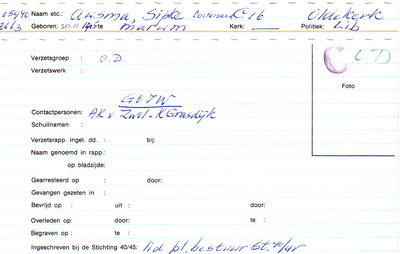 05940 Naam etc.: Ausma, Sipke Oosterzand C16 Oldekerk
Geboren: 30.11.1915 te Marum Kerk: — Politiek: Lib
Verzetsgroep : O.D.
Verzetswerk :
Foto
GOIW
Contactpersonen: AK v. Zwol - K Grasdijk
Schuilnaam :
Verzetsrapp. ingel. dd. : bij:
Naam genoemd in rapp.:
op bladzijde:
Gearresteerd op : door:
Gevangen gezeten in :
Bevrijd op : uit : door:
Overleden op : door: te :
Begraven op : te :
Ingeschreven bij de Stichting 40/45: lid pl. bestuur St. 40/45